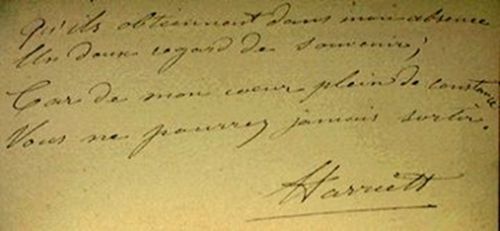 Qu'ils obtiennent dans mon absence
Un doux regard de souvenir;
Car de mon cœur plein de constance
Vous ne pourrez jamais sortir.
Harriett